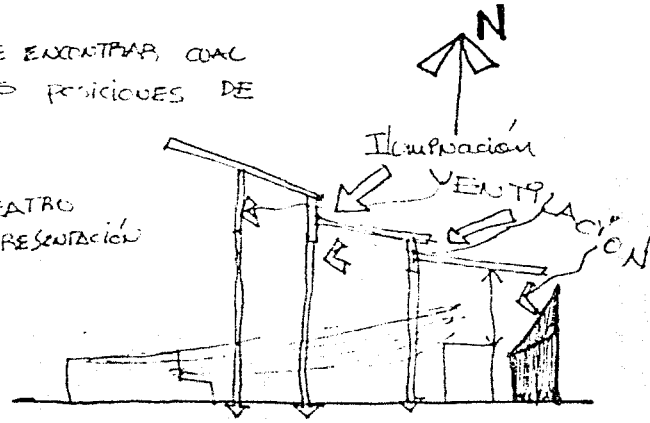 E ENCONTRAR, CUAL
S POSICIONES DE
N
Iluminación
VENTILACIÓN
EATRO
RESENTACIÓN